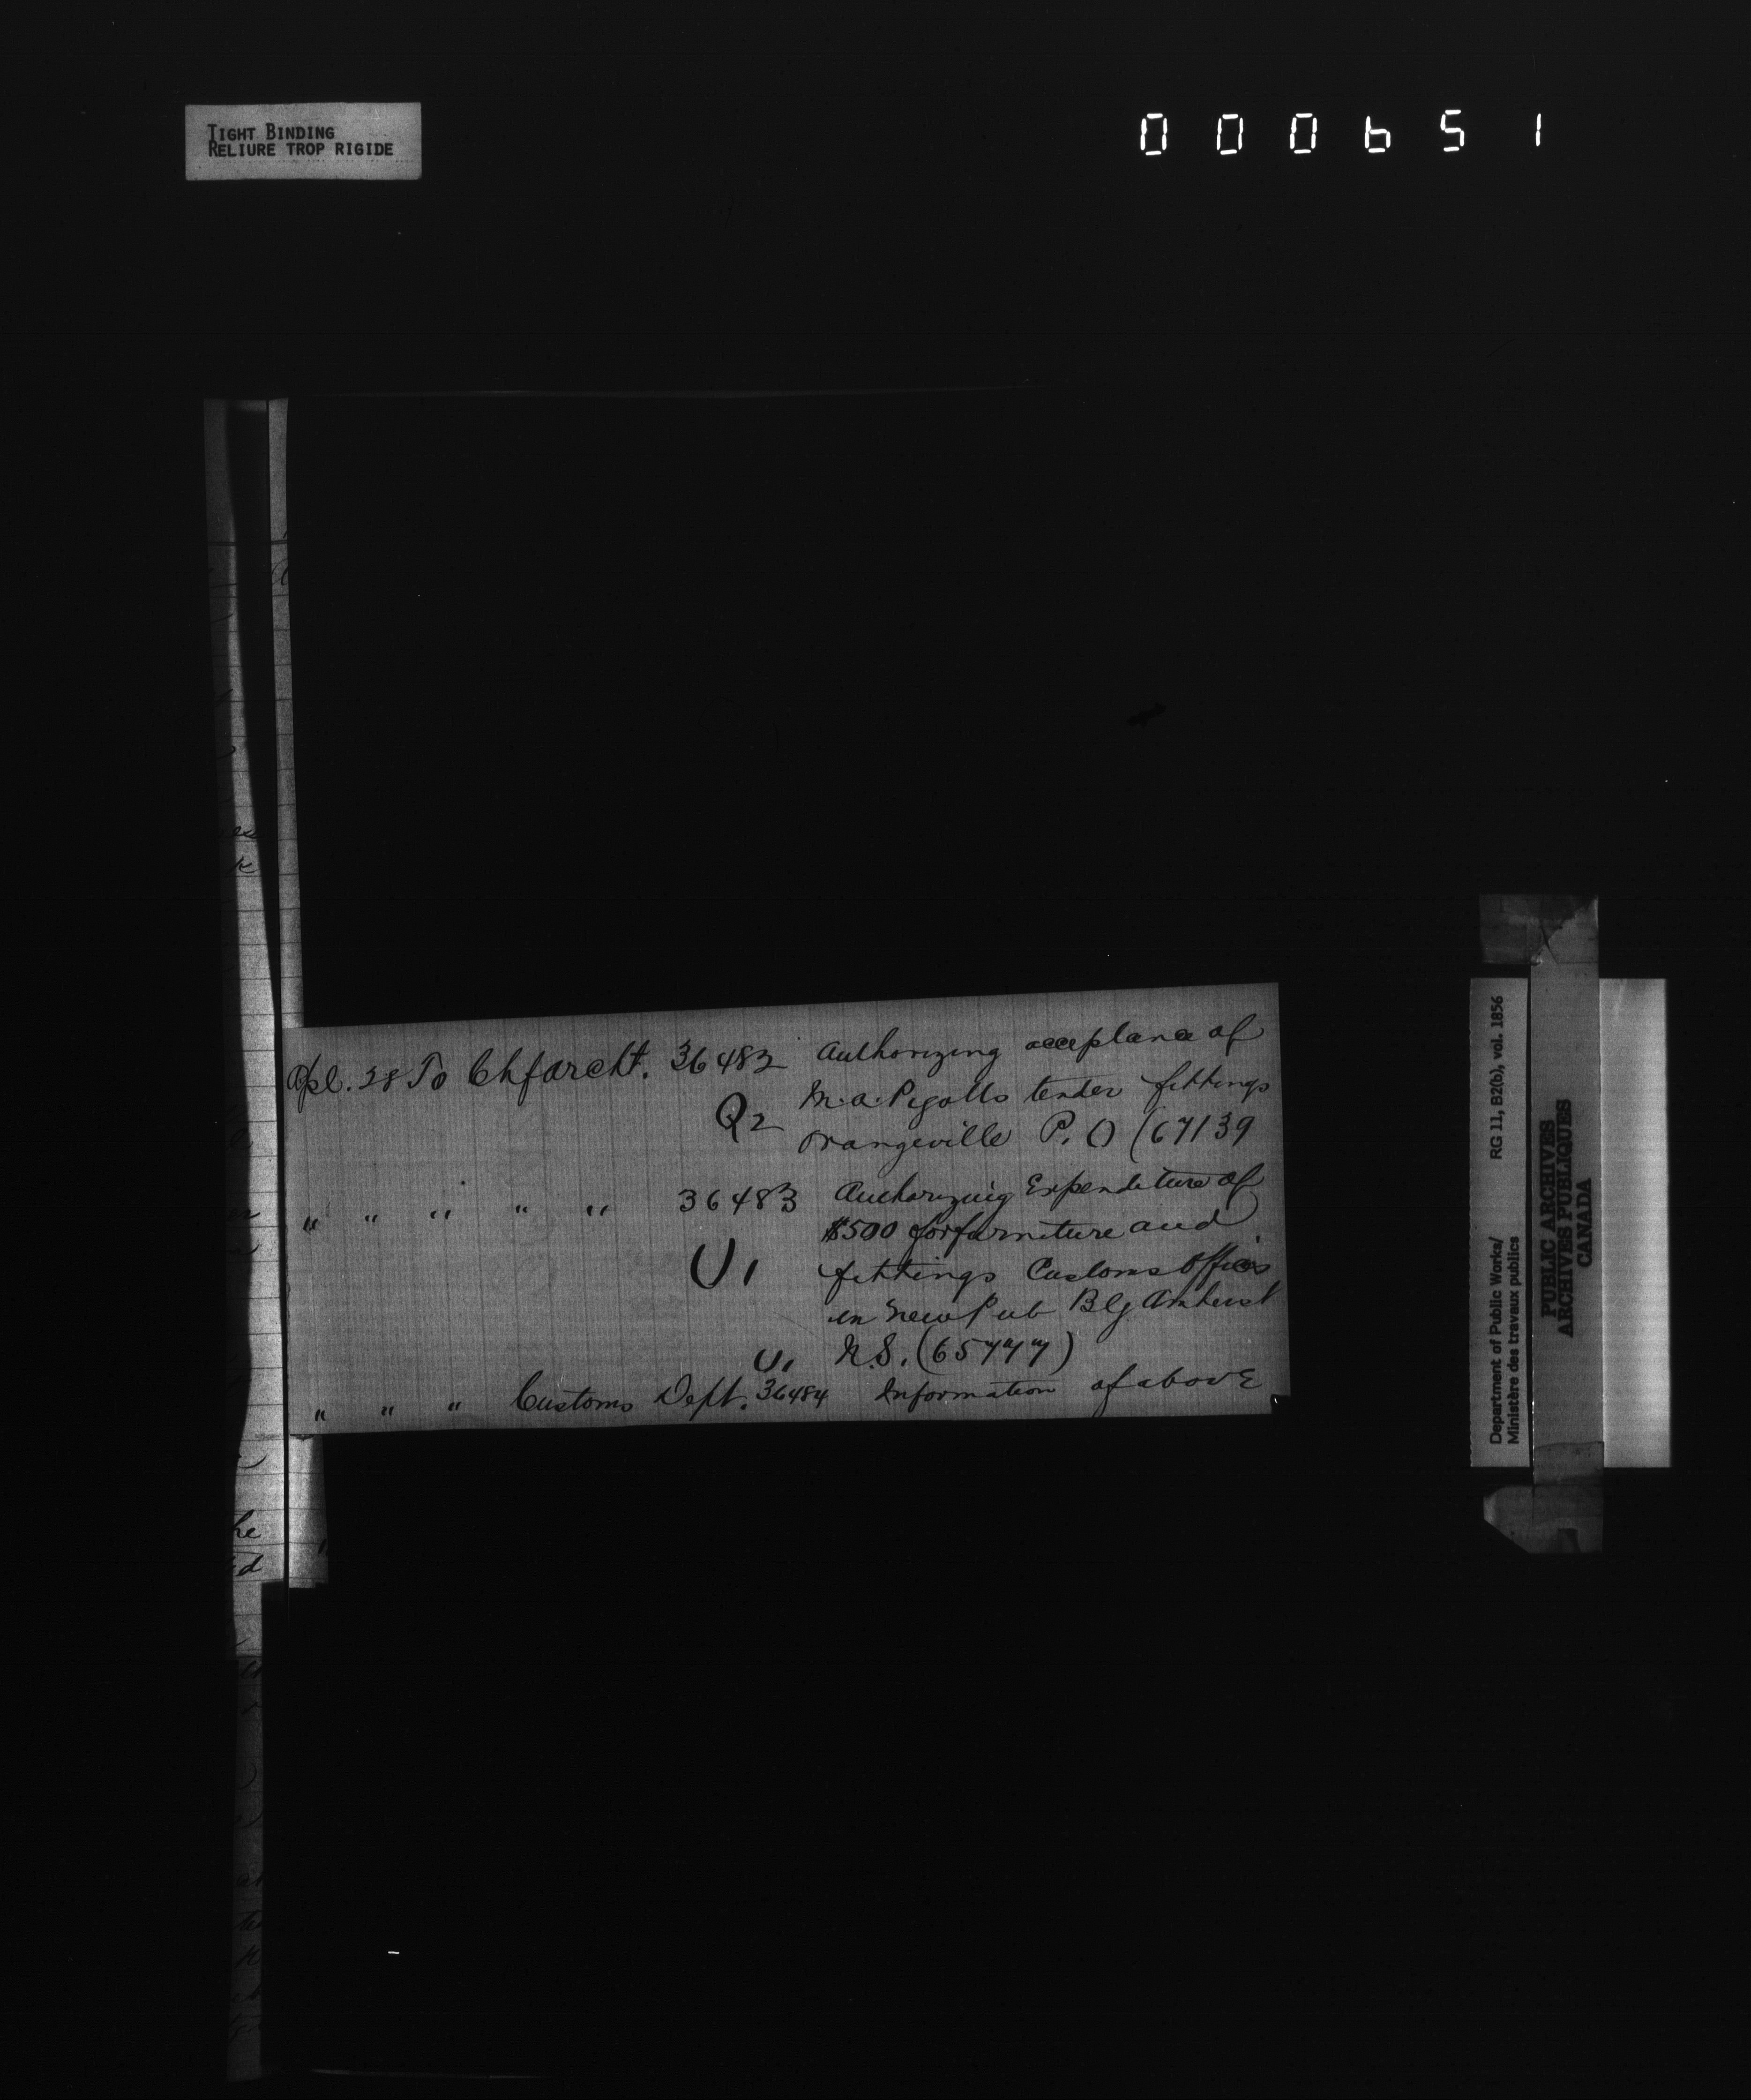 TIGHT BINDING
RELIURE TROP RIGIDE
000651
Apl. 28 To Chf archt. 36482 Authorizing acceptance of
Q2 M. A. Pigotts tender fittings
Orangeville P. O (67139
" " " " " 36483 Authorizing Expenditure of
$500 for furniture and
U1 fittings Customs Offices
in New Pub Blg Amherst
U1 N.S. (65777)
" " " Customs Dept. 36484 Information of above
he
ed
Department of Public Works/ RG 11, B2(b), vol. 1856
Ministère des travaux publics
PUBLIC ARCHIVES
ARCHIVES PUBLIQUES
CANADA